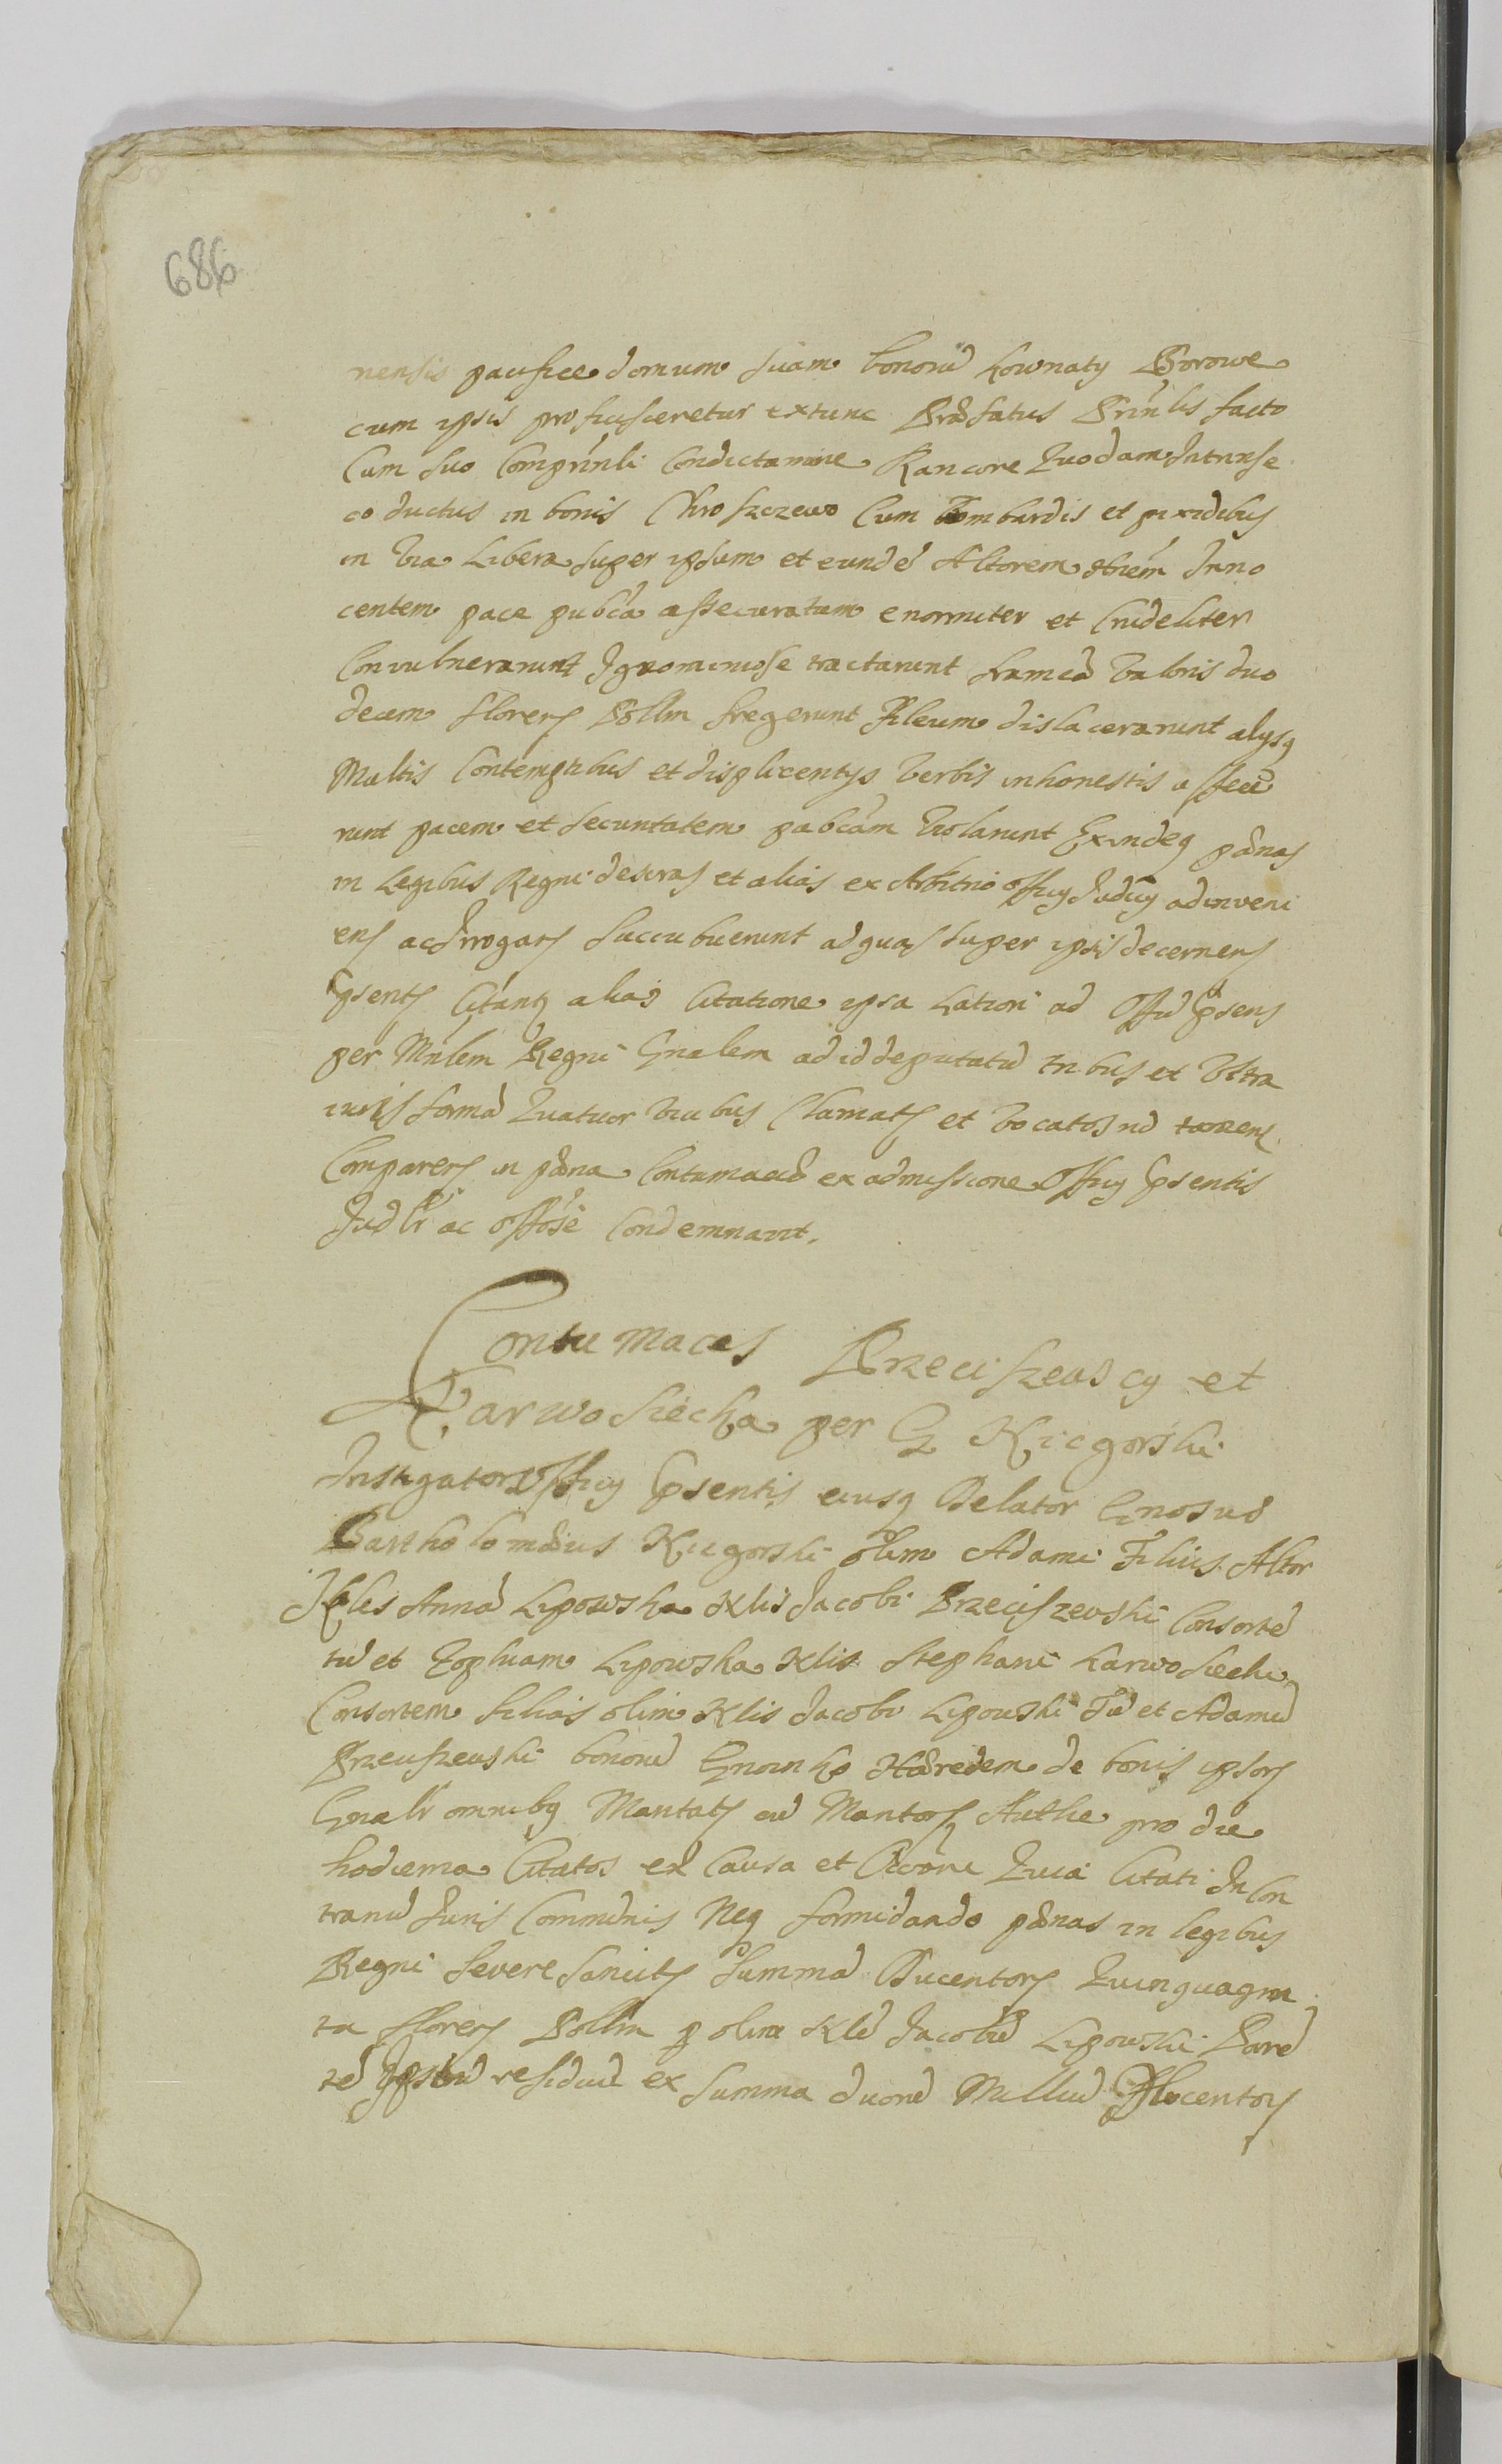 686
nensis pacifice domum suam bonorũ Kownaty Borowe
cum ipsis proficisceretur extunc Præfatus Prinlis facto
Cum suo Comprinli Condictamine Rancore Quodam Intrinse
co ductus in bonis Chroszczewo Cum Bombardis et pixidibus
in Via Libera super ipsum et eundẽ Actorem Inno
centem pace pubca assecuratum enormiter et Crudeliter
Convulnerarunt Ignominiose tractarunt Frameã Valoris duo
decem floren Pollm fregerunt Pileum dislacerarunt alysq
Multis Contemptibus et displicentys Verbis inhonestis affece
runt pacem et securitatem pubcam Violarunt Exindeq pænas
in Legibus Regni descras et alias ex Arbitrio Officy Judicy adinveni
en ac Irrogan Succubuerunt ad quas super ipsis decernen
Psents Citants alias Citatione ipsa Latiori ad Offm Psens
per Mnlem Regni Gnalem ad id deputatũ tribus et Vltra
iuris formã Quatuor Vicibus Clamats et Vocatos nõ
Comparen in pæna Contumaciæ ex admissione Officy Psentis
Judlr ac Offose Condemnavit.
Contumaces Brzeciszewscy et
Karwosiecka per G Kicgorski
Instigator Officy Psentis eiusq Delator Gnosus
Bartholomæus Kicgorski olim Adami Filius Actor
Nbles Annã Lipowska Nblis Jacobi Brzeciszewski Consortẽ
tũ et Zophiam Lipowska Nblis Stephani Karwosiecki
Consortem filias olim Nblis Jacobi Lipowski Tũ et Adamũ
Brzeciszewski bonorũ Gnoinko Hæredem de bonis ipsor
Gnalr omnibq Mantats ad Mantor Authæ pro die
hodierna Citatos ex Causa et Accone Quia Citati In Con
trariũ Juris Communis Neq formidando pænas in legibus
Regni severe sancits Summã Ducentor Quinquagin
ta floren Pollm p olim Nblẽ Jacobũ Lipowski Paren
tẽ Ipsarũ residuã ex Summa duorũ Milliũ